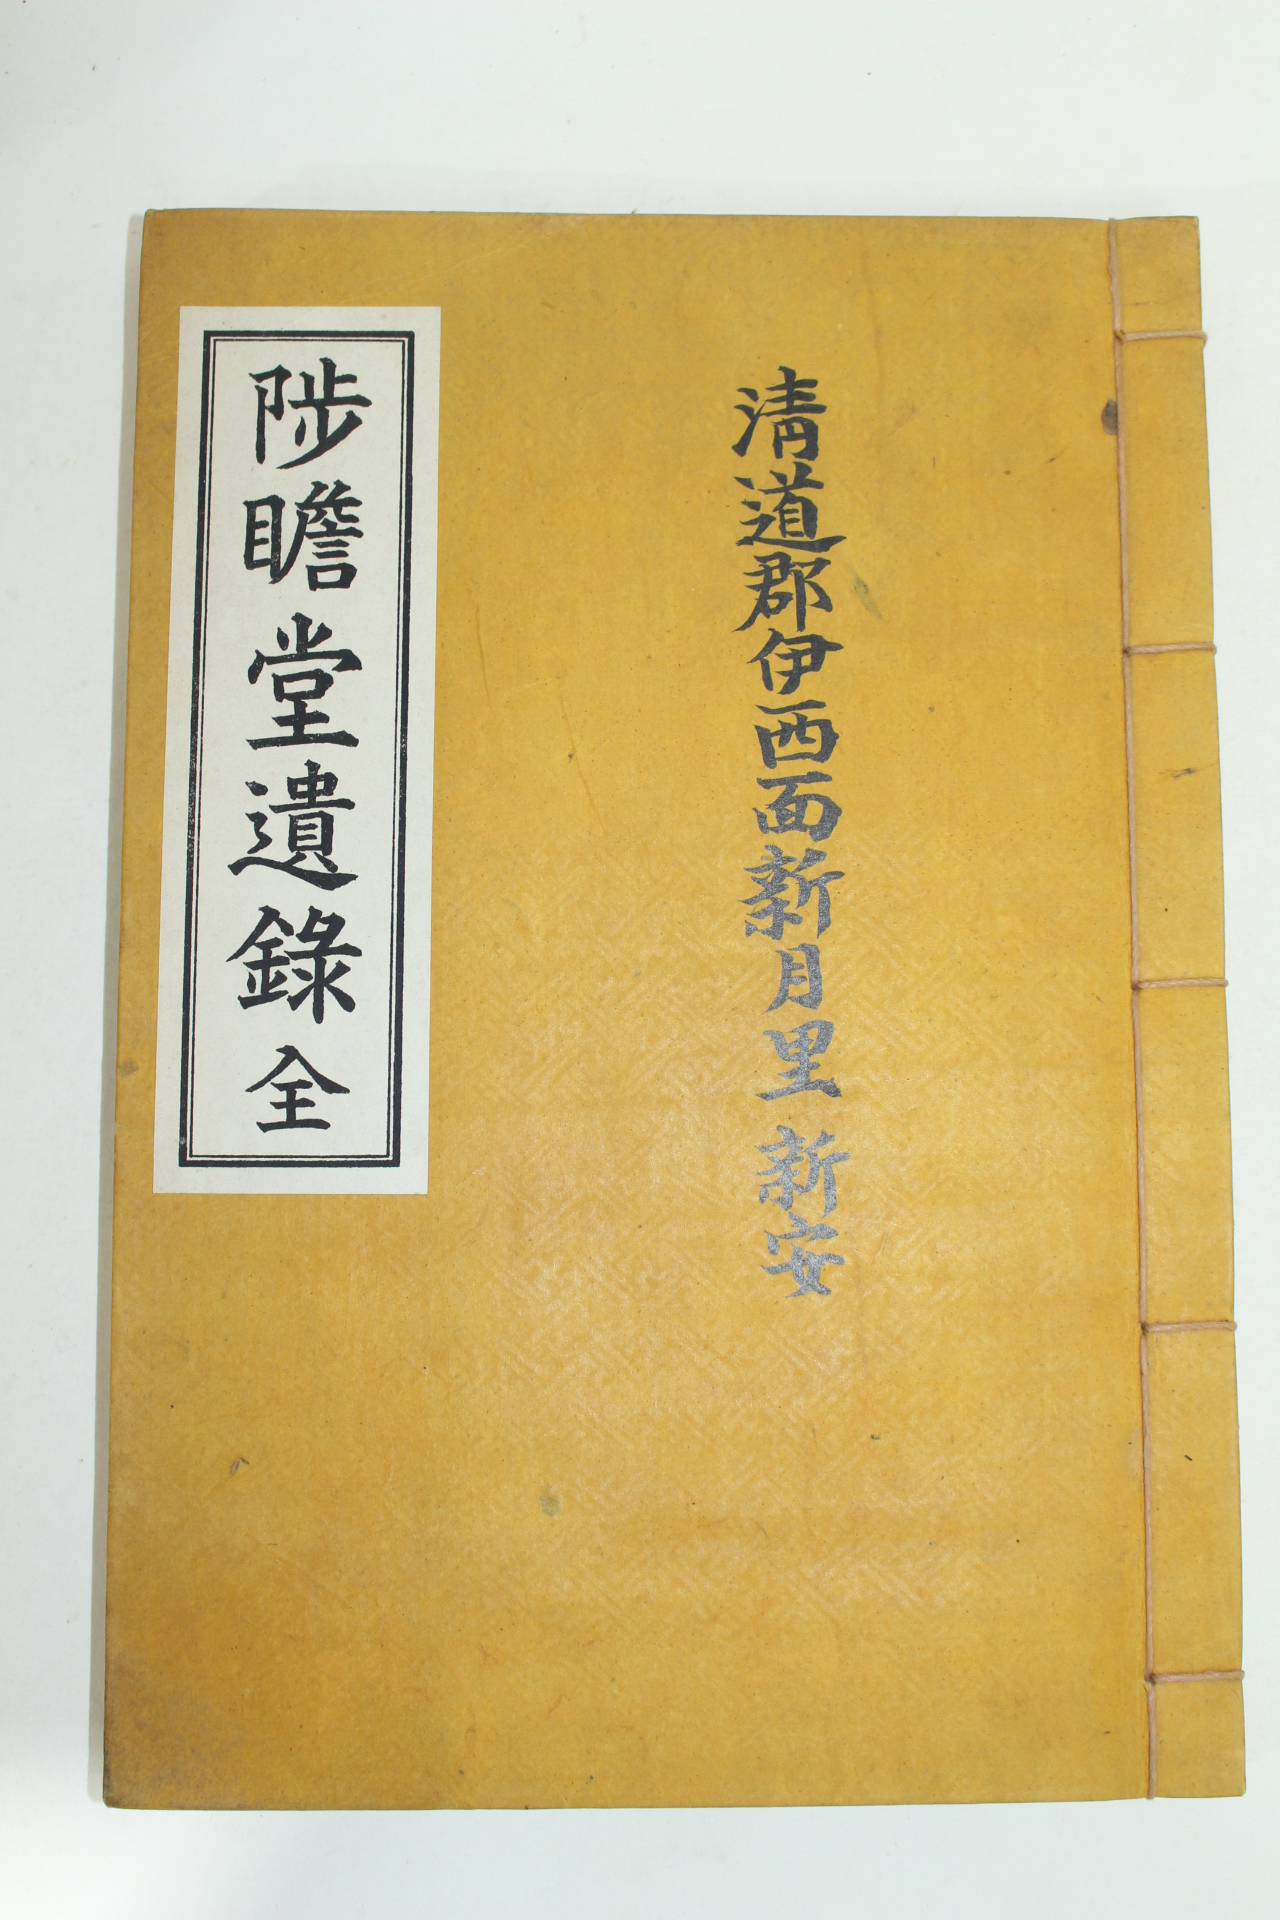 清道郡伊西面新月里 新安
陟瞻堂遺錄 全